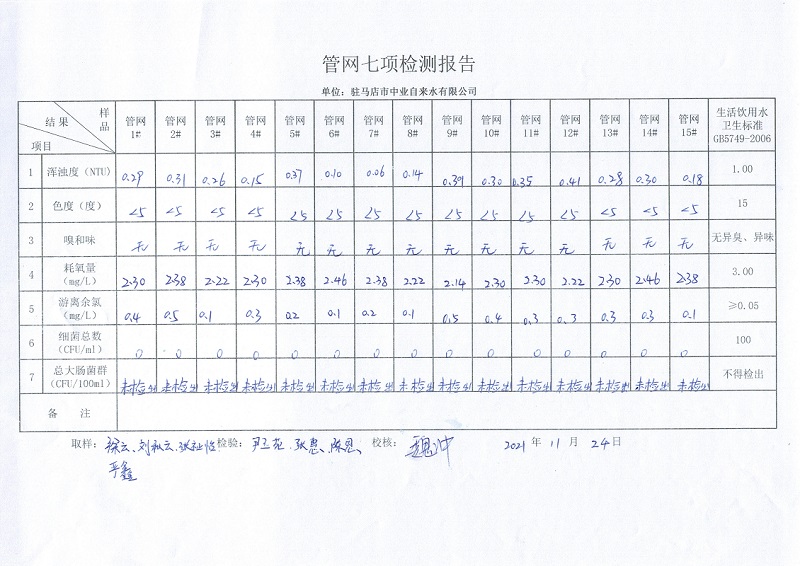 管网七项检测报告
单位：驻马店市中业自来水有限公司
结果 样品 项目 管网1# 管网2# 管网3# 管网4# 管网5# 管网6# 管网7# 管网8# 管网9# 管网10# 管网11# 管网12# 管网13# 管网14# 管网15# 生活饮用水卫生标准GB5749-2006
1 浑浊度（NTU） 0.29 0.31 0.26 0.15 0.37 0.10 0.06 0.14 0.39 0.30 0.35 0.41 0.28 0.30 0.18 1.00
2 色度（度） <5 <5 <5 <5 <5 <5 <5 <5 <5 <5 <5 <5 <5 <5 <5 15
3 嗅和味 无 无 无 无 无 无 无 无 无 无 无 无 无 无 无 无异臭、异味
4 耗氧量（mg/L） 2.30 2.38 2.22 2.30 2.38 2.46 2.38 2.22 2.14 2.30 2.30 2.22 2.30 2.46 2.38 3.00
5 游离余氯（mg/L） 0.4 0.5 0.1 0.3 0.2 0.1 0.2 0.1 0.5 0.4 0.3 0.3 0.3 0.3 0.1 ≥0.05
6 细菌总数（CFU/ml） 0 0 0 0 0 0 0 0 0 0 0 0 0 0 0 100
7 总大肠菌群（CFU/100ml） 未检出 未检出 未检出 未检出 未检出 未检出 未检出 未检出 未检出 未检出 未检出 未检出 未检出 未检出 未检出 不得检出
备注
取样： 徐云、刘秋云、 检验： 张惠、陈恩、 校核： 2021年11月24日